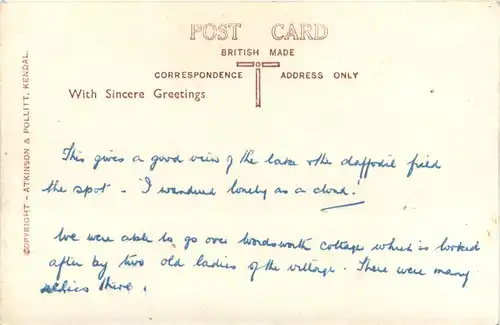 POST CARD
BRITISH MADE
CORRESPONDENCE ADDRESS ONLY
With Sincere Greetings
COPYRIGHT - ATKINSON & POLLITT, KENDAL.
This gives a good view of the lake & the daffodil field
the spot - "I wandered lonely as a cloud."
We were able to go over Wordsworth cottage which is looked
after by two old ladies of the village. There were many
relics there.